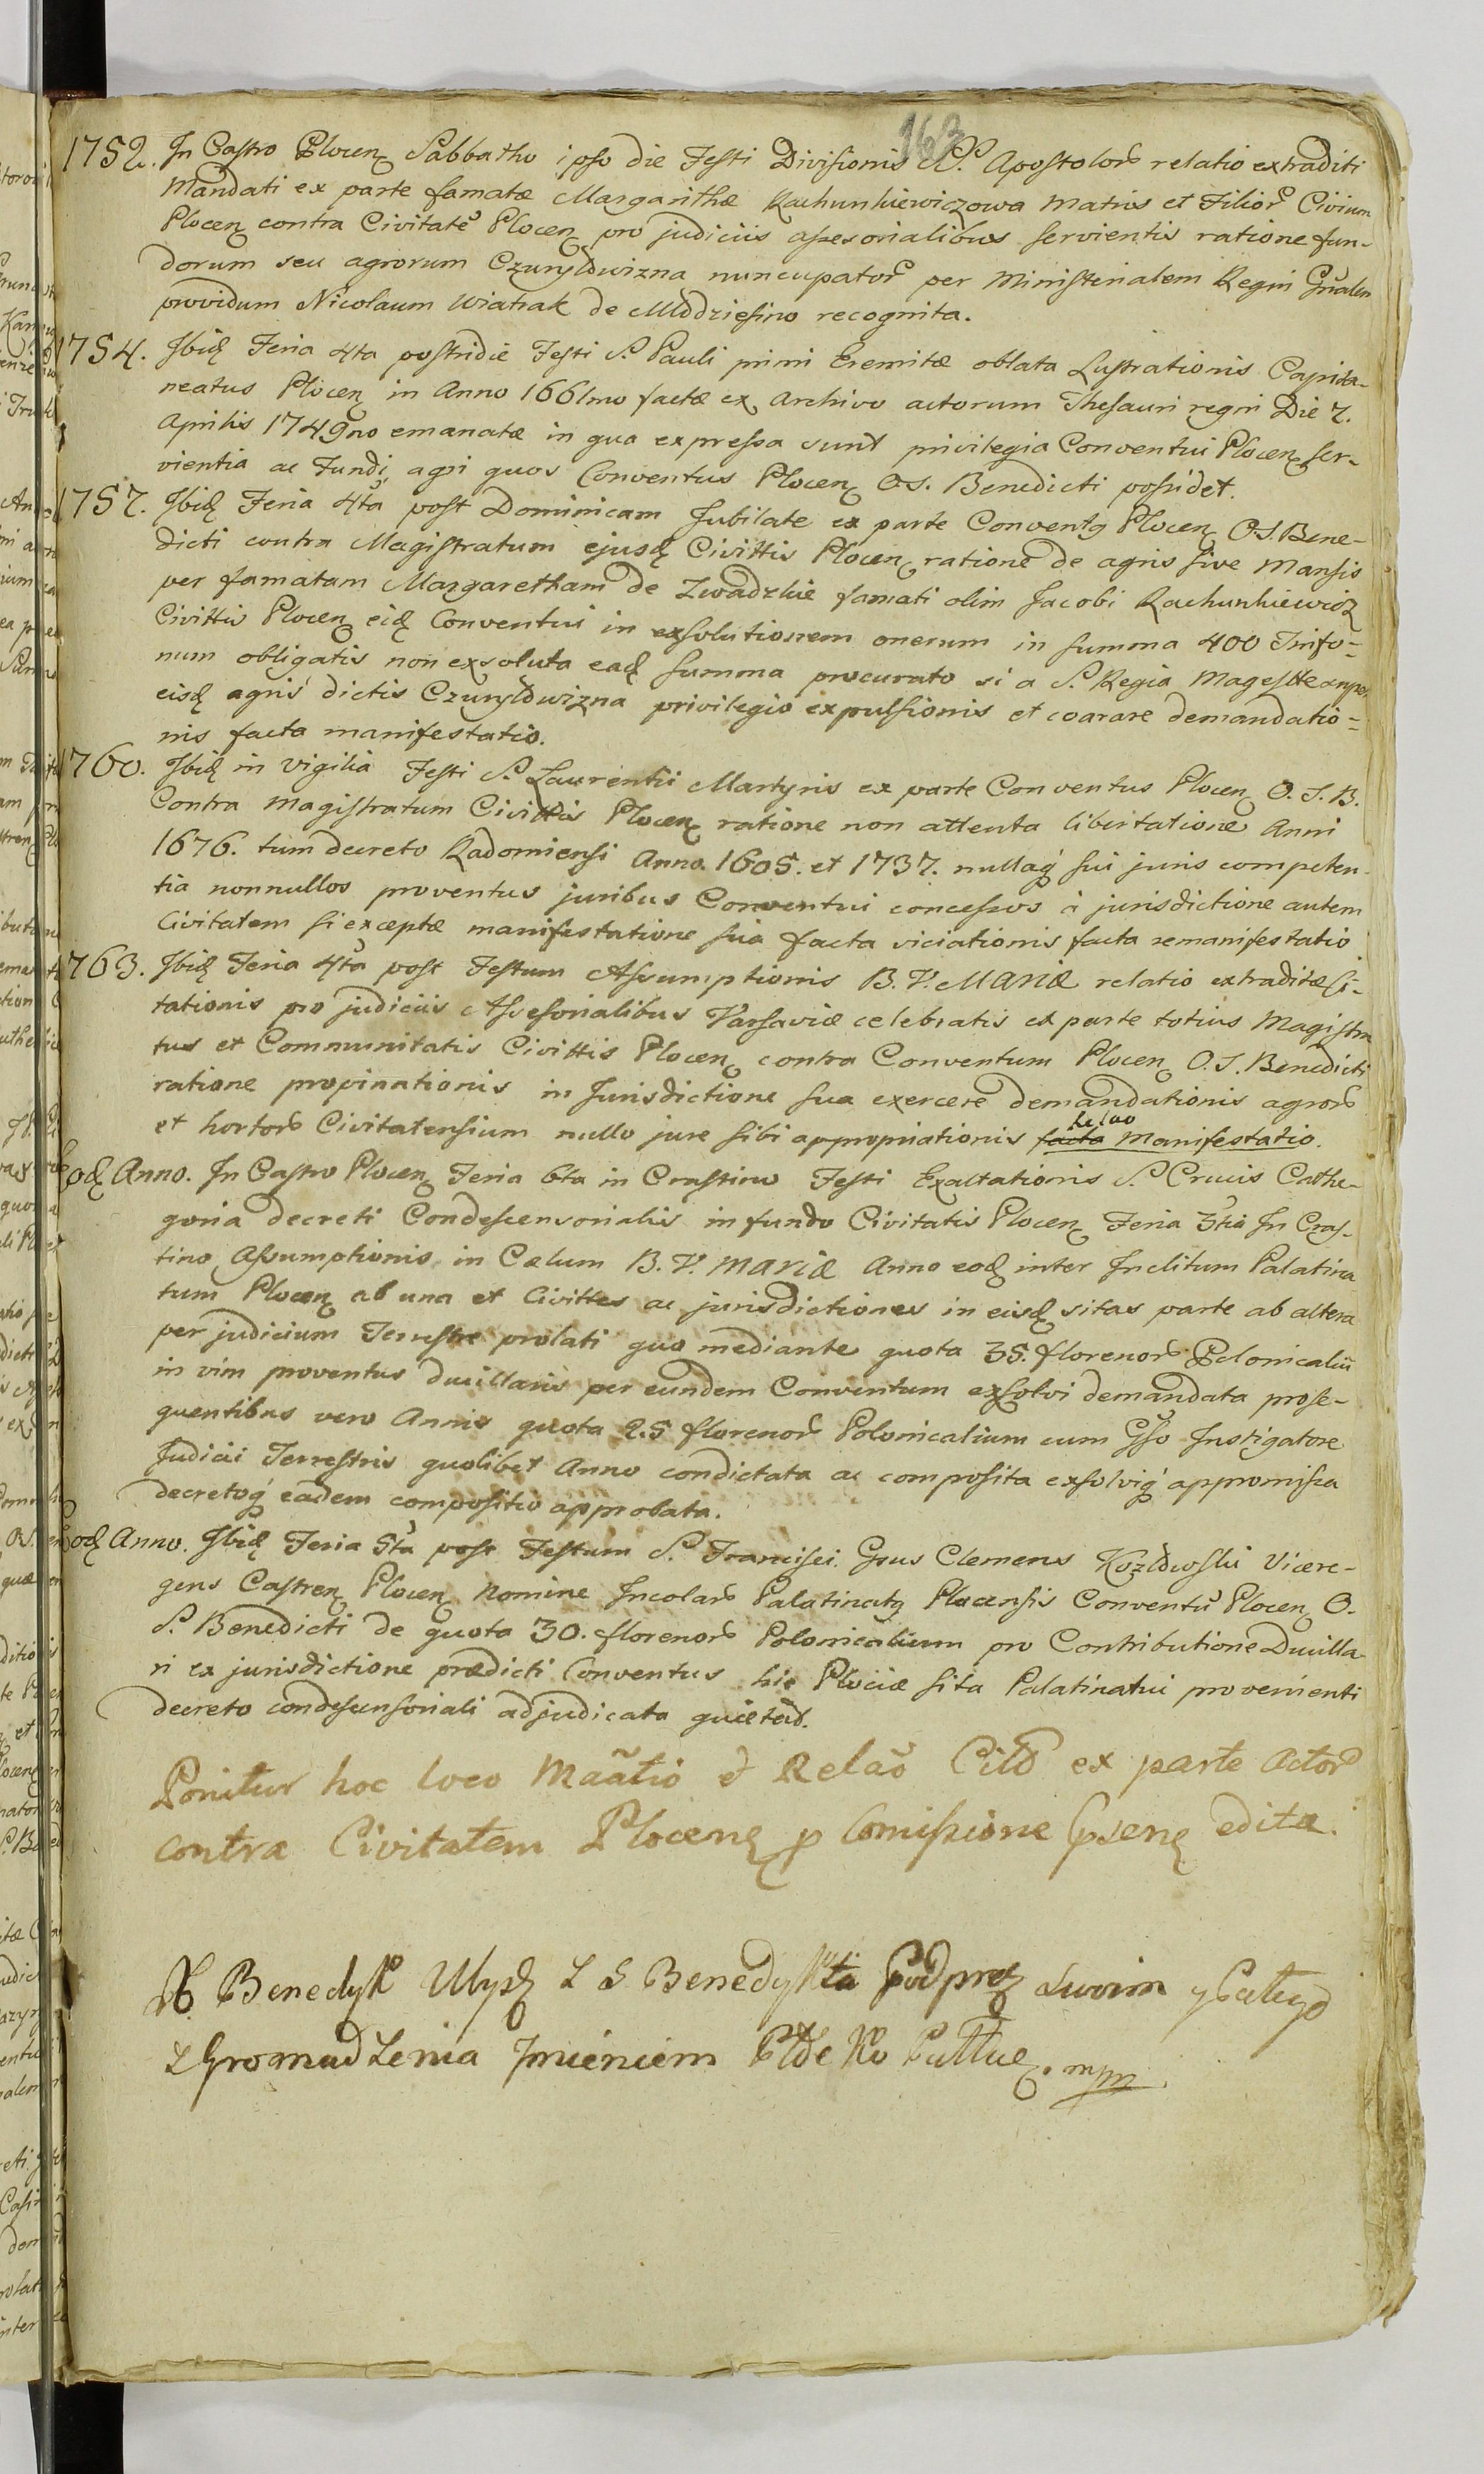 163
1752. In Castro Plocen Sabbatho ipso die Festi Divisionis SS. Apostolor relatio extraditi
Mandati ex parte famatæ Margarithæ Rachunkiewiczowa Matris et Filior Civium
Plocen contra Civitatē Plocen pro judiciis assesorialibus servientis ratione fun-
dorum seu agrorum Czuryłowizna nuncupator per Ministerialem Regni Gñalem
providum Nicolaum Wiatrak de recognita.
1754. Ibid Feria 4ta postridie Festi S. Pauli primi Eremitæ oblata Lustrationis Capita-
neatus Plocen in Anno 1661mo factæ ex Archivo actorum Thesauri regni Die 7.
Aprilis 1749no emanatæ in qua expressa sunt privilegia Conventui Plocen ser-
vientia ac Fundi, agri quos Conventus Plocen O.S. Benedicti possidet.
1757. Ibid Feria 4ta post Dominicam Jubilate ex parte Conventq Plocen O.S. Bene-
dicti contra Magistratum ejusd Civittis Plocen ratione de agris sive Mansis
per famatam Margaretham de Zwadzkie famati olim Jacobi Rachunkiewicz
Civittis Plocen eid Conventui in exsolutionem onerum in summa 400 Tinfo-
num obligatis non exsoluta ead summa procurato si a S. Regia Magestte
eisd agris dictis Czuryłowizna privilegio expulsionis et coarare demandatio-
nis facta manifestatio.
1760. Ibid in Vigilia Festi S. Laurentii Martyris ex parte Conventus Plocen O.S.B.
Contra Magistratum Civittis Plocen ratione non attenta libertatione Anni
1676. tum decreto Radomiensi Anno. 1605. et 1737. nullaq sui juris competen-
tia nonnullos proventus juribus Conventui concessos à jurisdictione autem
Civitatem si exceptæ manifestatione sua facta viciationis facta remanifestatio
1763. Ibid Feria 4ta post Festum Assumptionis B.V. MARIÆ relatio extraditæ Ci-
tationis pro judiciis Assesorialibus Varsaviæ celebratis ex parte totius Magistra
tus et Communitatis Civittis Plocen contra Conventum Plocen O.S. Benedicti
ratione propinationis in Jurisdictione sua exercere demandationis agror
et hortor Civitatensium nullo jure sibi appropriationis facta Manifestatio.
Relao
Eod Anno. In Castro Plocen Feria 6ta in Crastino Festi Exaltationis S. Crucis Cathe-
goria decreti Condescensorialis in fundo Civitatis Plocen Feria 3tia In Cras-
tino Assumptionis in Cælum B.V. MARIÆ Anno eod inter Inclitum Palatina
tum Plocen ab una et Civittes ac jurisdictiones in eisd sitas parte ab altera
per judicium Terrestre prolati quo mediante quota 35. florenor Polonicaliū
in vim proventus duillaris per eundem Conventum exsolvi demandata prose-
quentibus vero Annis quota 25 florenor Polonicalium cum Gso Instigatore
Judicii Terrestris quolibet Anno condictata ac composita exsolviq appromissa
decretoq eadem compositio approbata.
Eod Anno. Ibid Feria 5ta post Festum S. Francisci Gsus Clemens Kozłowski Vicere-
gens Castren Plocen Nomine Incolar Palatinatq Plocensis Conventū Plocen O.
S. Benedicti de quota 30. florenor Polonicalium pro Contributione Duilla-
ri ex jurisdictione prædicti Conventus hic Plociæ sita Palatinatui provenienti
decreto condesensoriali adjudicata quietad.
Ponitur hoc loco Maãtio et Relaõ Citō ex parte Actor
contra Civitatem Plocenę p Comissione Gsenę edita.
X Benedykt Z S Benedykta swoim y Całego
Zgromadzenia Imieniem mpm